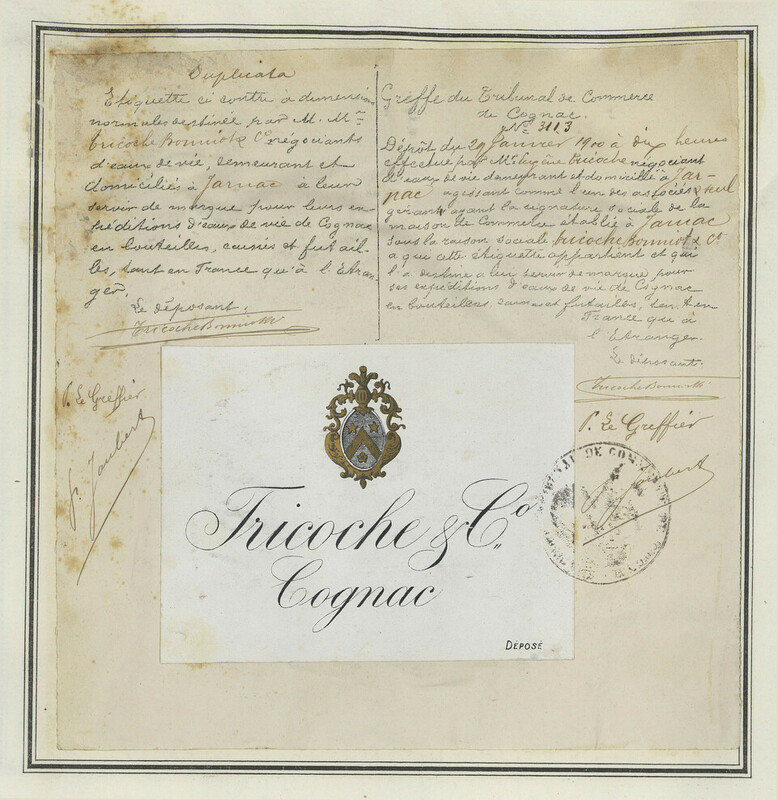 Duplicata
Etiquette ci contre à dimensions
normales destinée par M. Mrs
Tricoche Bonniot & Co négociants
d'eaux de vie, demeurant et
domiciliés à Jarnac à leur
servir de marque pour leurs ex-
péditions d'eaux de vie de Cognac
en bouteilles, caisses et futail-
les, tant en France qu'à l'Etran-
ger.
Le déposant.
Tricoche Bonniot &
P. Le Greffier
Joubert
Greffe du Tribunal de Commerce
de Cognac.
No 3113
Dépôt du 29 Janvier 1900 à dix heures
effectué par M. Tricoche négociant
d'eaux de vie demeurant et domicilié à Jar-
nac, agissant comme l'un des associés & seul
gérant ayant la signature sociale de la
maison de Commerce établie à Jarnac
sous la raison sociale Tricoche Bonniot & Co
a qui cette étiquette appartient et qui
l'a destine a leur servir de marque pour
ses expéditions d'eaux de vie de Cognac
en bouteilles, caisses et futailles, tant en
France qu'à
l'Etranger.
Le déposant.
Tricoche Bonniot &
P. Le Greffier
Joubert
Tricoche & Co
Cognac
DÉPOSÉ